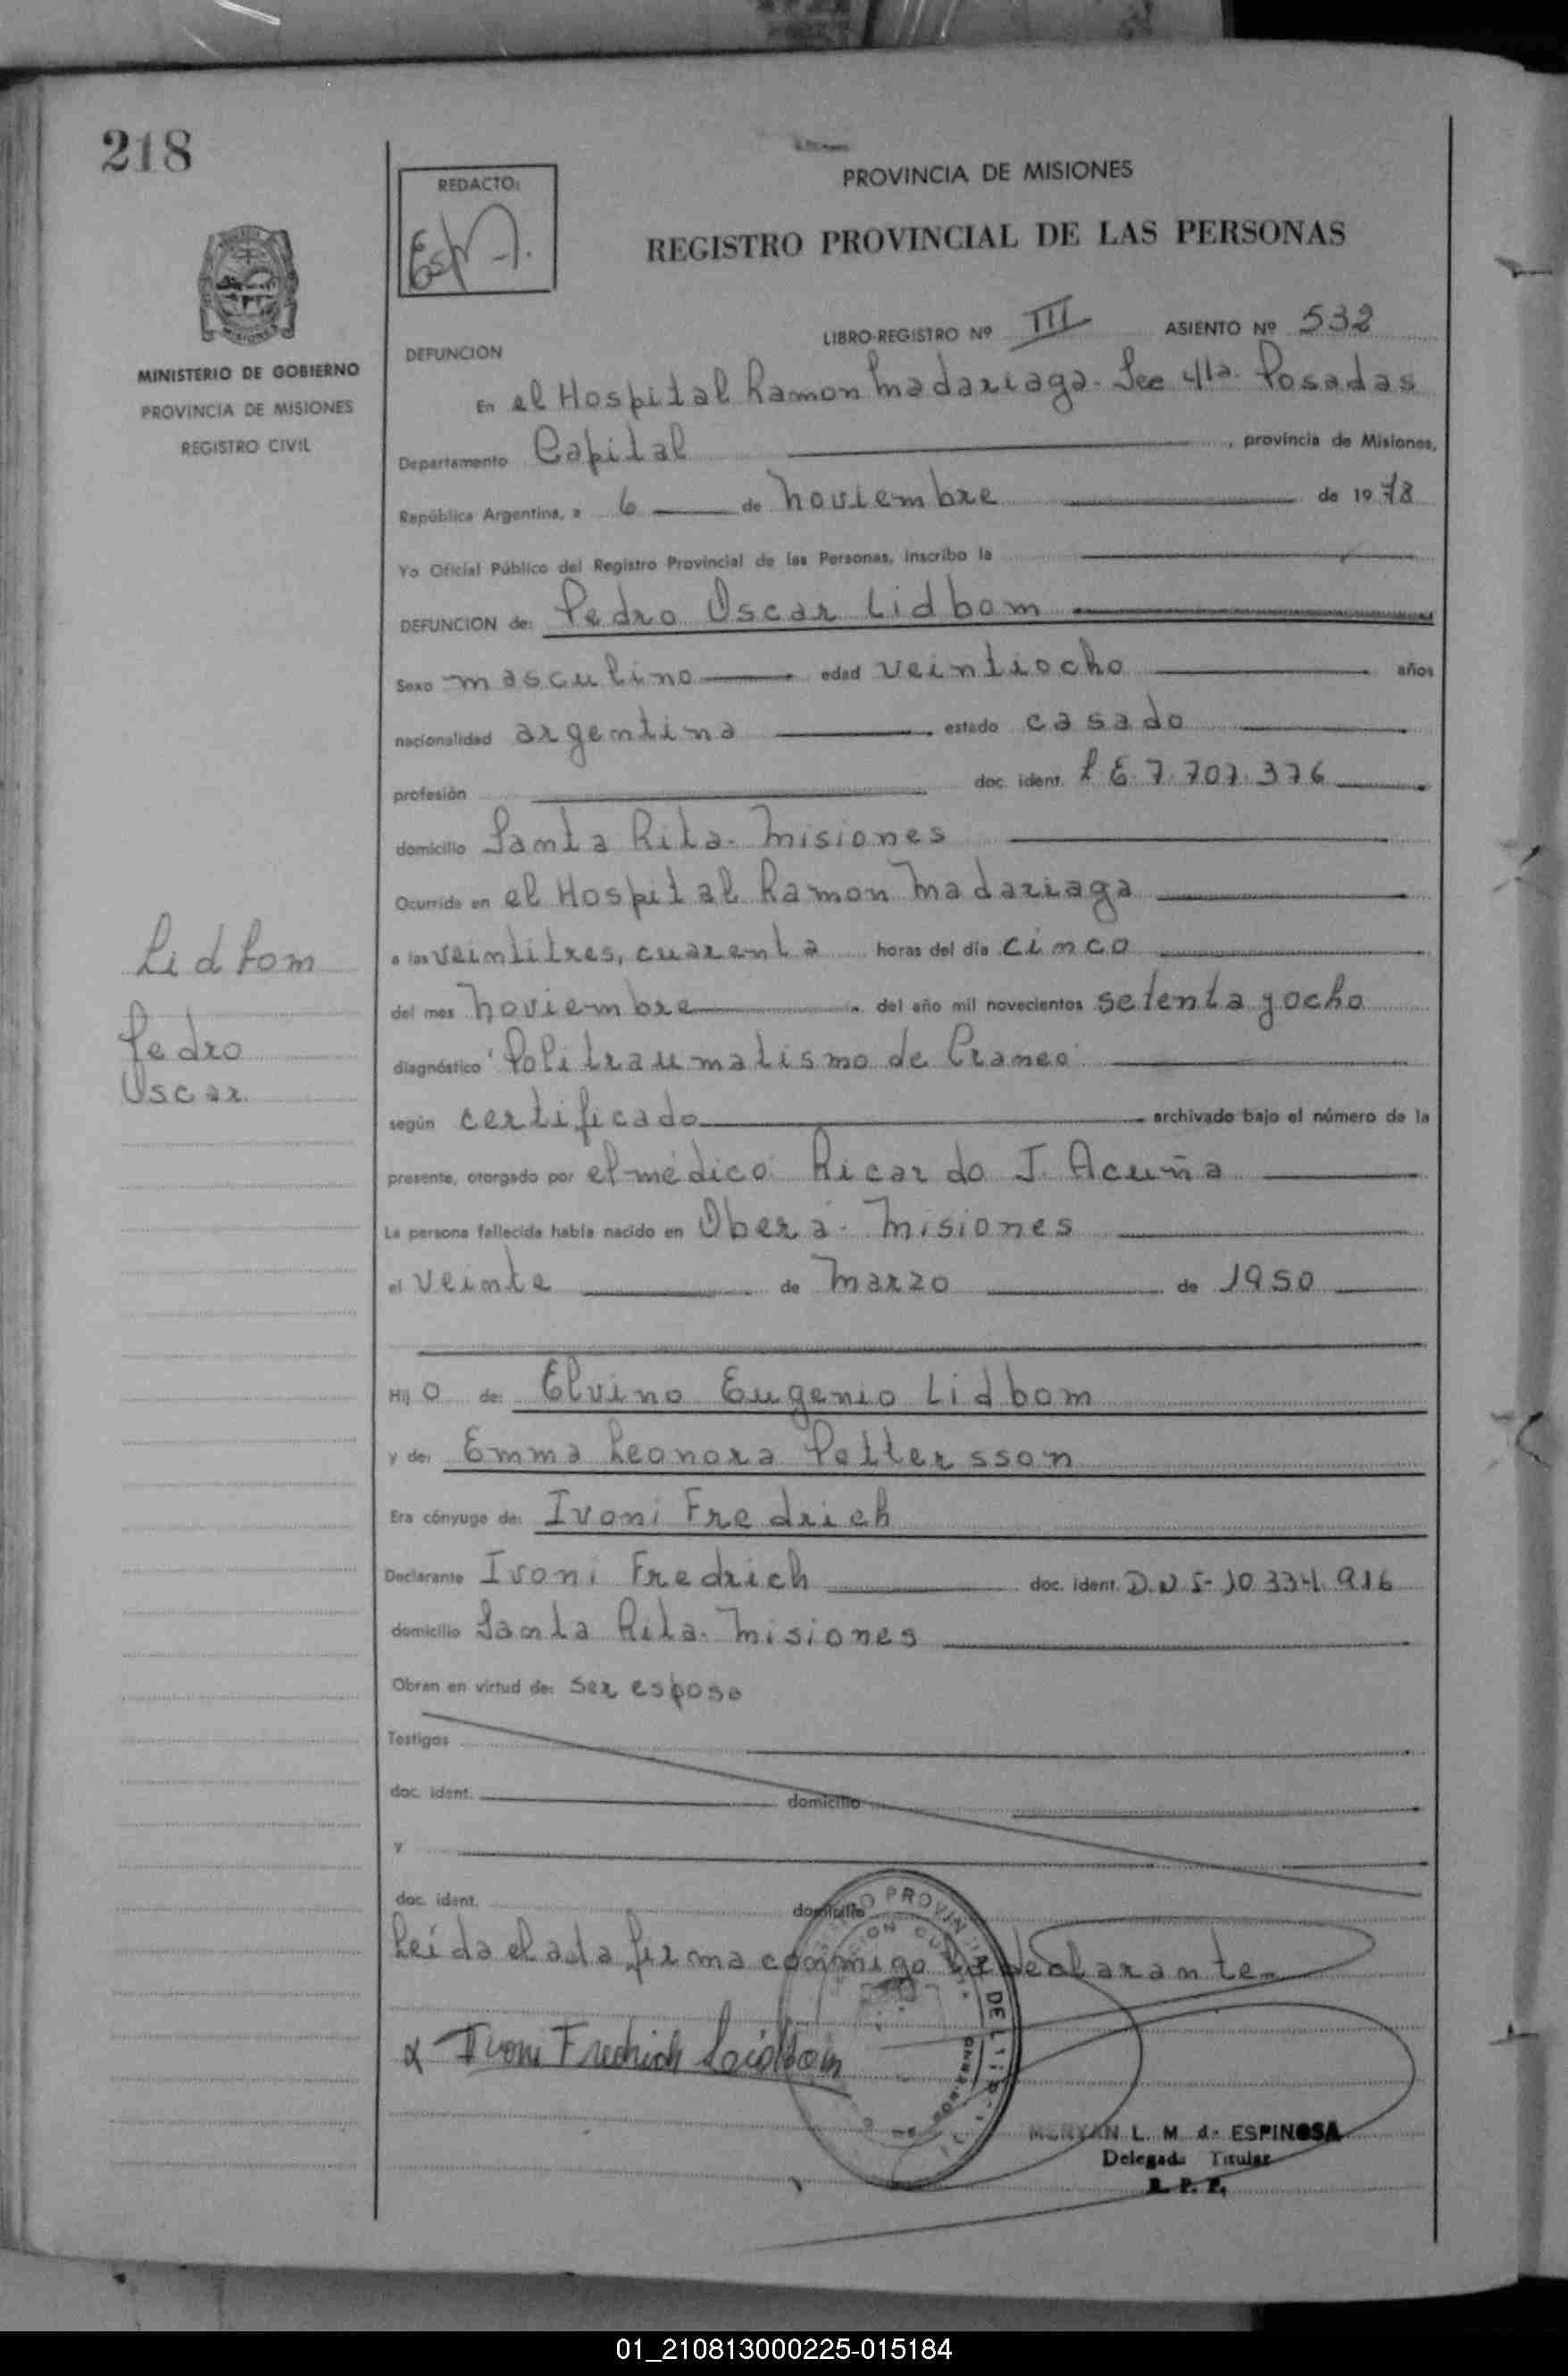 218
REDACTO:
PROVINCIA DE MISIONES
REGISTRO PROVINCIAL DE LAS PERSONAS
LIBRO-REGISTRO Nº III ASIENTO Nº 532
MINISTERIO DE GOBIERNO
PROVINCIA DE MISIONES
REGISTRO CIVIL
DEFUNCION
En el Hospital Ramon Madariaga. Sec 4ta. Posadas
Departamento Capital, provincia de Misiones,
República Argentina, a 6 de Noviembre de 1978
Yo Oficial Público del Registro Provincial de las Personas, inscribo la
DEFUNCION de: Pedro Oscar Lidbom
Sexo masculino edad veintiocho años
nacionalidad argentina estado casado
profesión doc. ident. L E. 7.707.376
domicilio Santa Rita. Misiones
Ocurrida en el Hospital Ramon Madariaga
a las veintitres, cuarenta horas del día cinco
Lidbom
del mes Noviembre del año mil novecientos setenta y ocho
Pedro
diagnóstico "Politraumatismo de Craneo"
Oscar.
según certificado archivado bajo el número de la
presente, otorgado por el médico: Ricardo J. Acuña
La persona fallecida había nacido en Oberá - Misiones
el veinte de Marzo de 1950
Hij o de: Elvino Eugenio Lidbom
y de: Emma Leonora Pettersson
Era cónyuge de: Ivoni Fredrich
Declarante Ivoni Fredrich doc. ident. D.N I- 10.334.916
domicilio Santa Rita. Misiones
Obran en virtud de: ser esposa
Testigos
doc. ident. domicilio
y
doc. ident. domicilio
Leída el acta firma conmigo la declarante.
x Ivoni Fredrich Lidbom
L. M. de ESPINOSA
Delegada Titular
R. P. P.
01_210813000225-015184